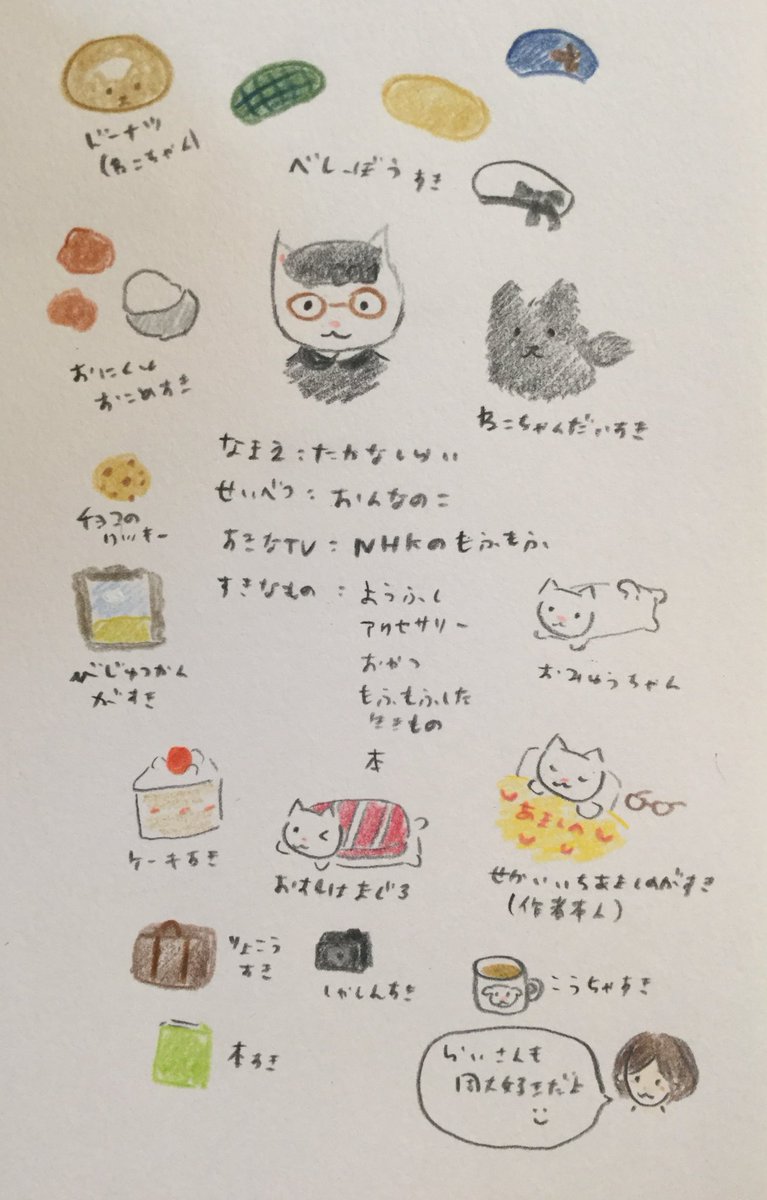 ドーナツ
(ねこちゃん)
べレーぼう すき
おにくと
おこめすき
ねこちゃんだいすき
なまえ:たかなしらい
せいべつ:おんなのこ
すきなTV:NHKのもふもふ
すきなもの:ようふく
アクセサリー
おかつ
もふもふした
生きもの
本
チョコの
クッキー
びじゅつかん
がすき
おみゅうちゃん
ケーキすき
おすしはまぐろ
あましの
せかいいちあましのがすき
(作者本人)
りょこう
すき
しゃしんすき
こうちゃすき
本すき
らいさんも
周大好きだよ